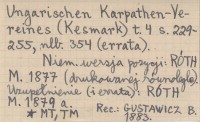 Ungarischen Karpathen-Ve-
reines (Kesmark) t. 4 s. 229-
255, nlb. 354 (errata).
Niem. wersja pozycji: ROTH
M. 1877 (drukowanej równolegle).
Uzupełnienie (i errata): ROTH
M. 1879 a.
* MT, TM Rec.: GUSTAWICZ B.
1883.